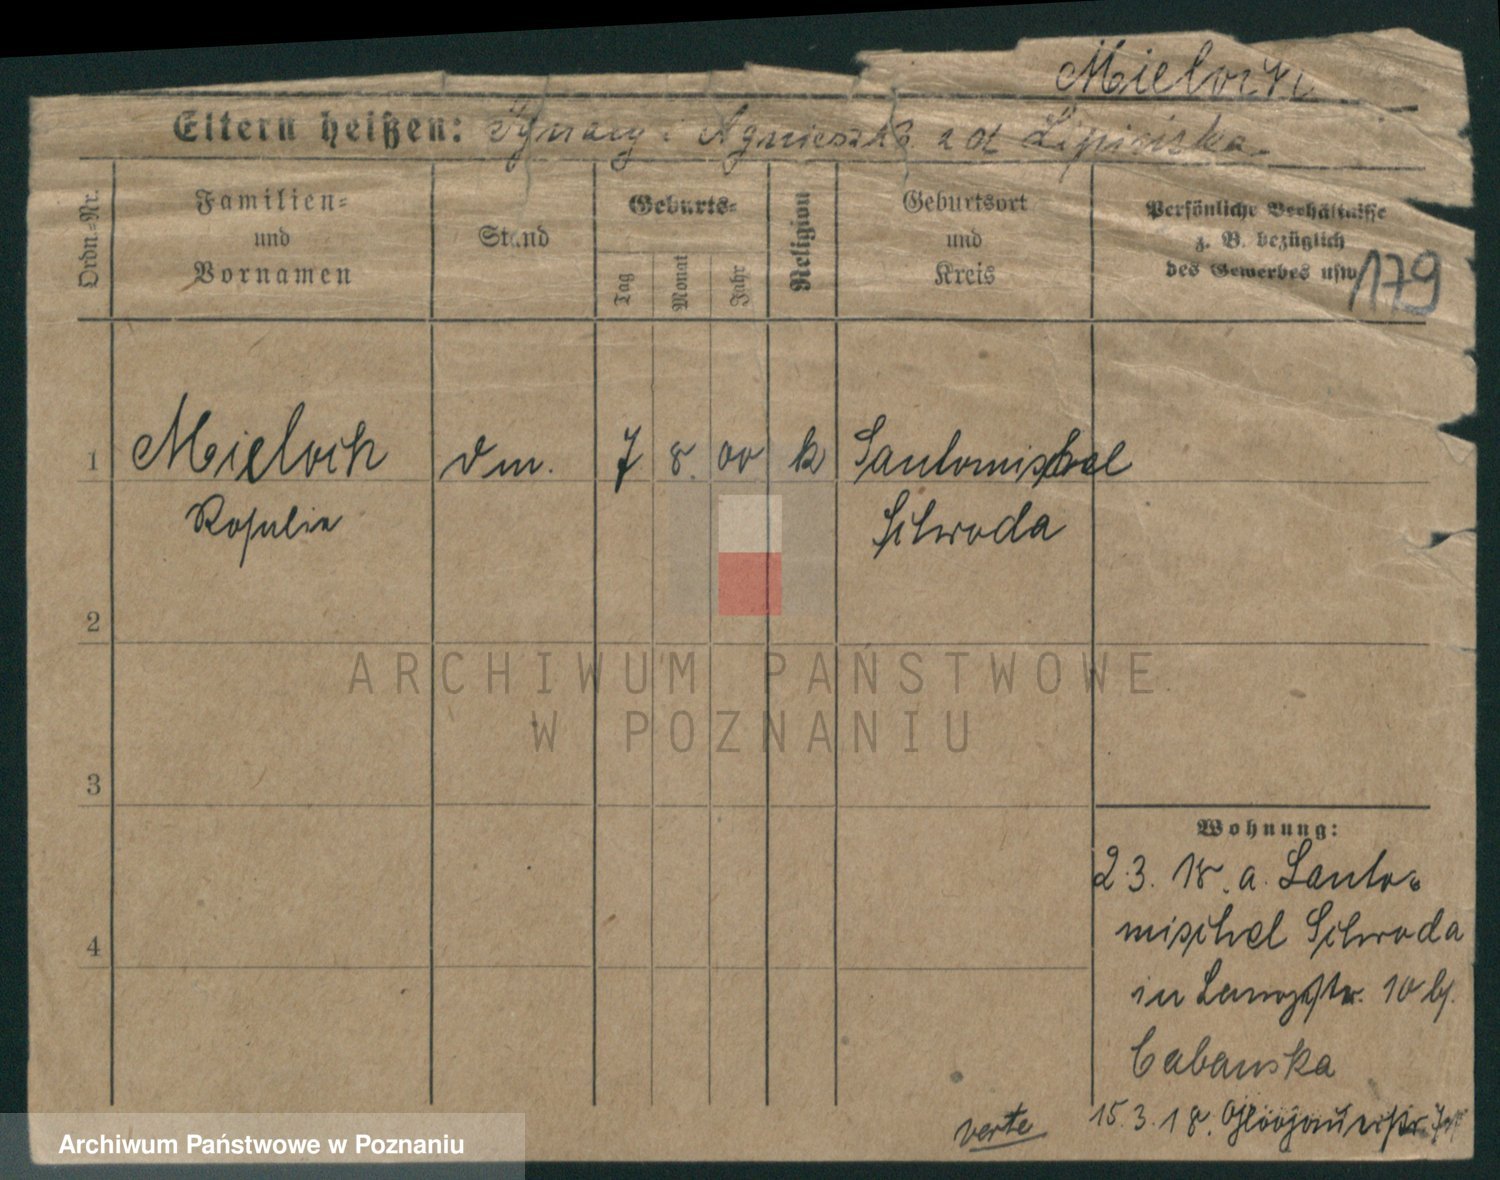 Mieloch
Eltern heißen: Ignacy i Agnieszka z d Lipińska
Ordn.-Nr.
Familien-
und
Vornamen
Stand
Geburts-
Tag
Monat
Jahr
Religion
Geburtsort
und
Kreis
Persönliche Verhältnisse
z. B. bezüglich
des Gewerbes usw.
179
1 Mieloch dm. 7 8. 00 k Santomischel
Rosalie Schroda
2
3
4
ARCHIWUM PAŃSTWOWE
W POZNANIU
Wohnung:
2.3. 18. a. Santo-
mischel Schroda
in Langstr. 10 b/.
Cabanska
15.3.18. Glogauerstr.
verte
Archiwum Państwowe w Poznaniu